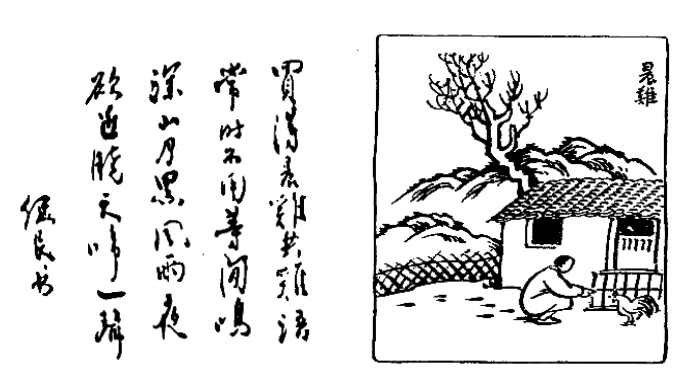 晨雞
買得晨雞共雞語
常時不用等閒鳴
深山月黑風雨夜
欲近曉天啼一聲
民书